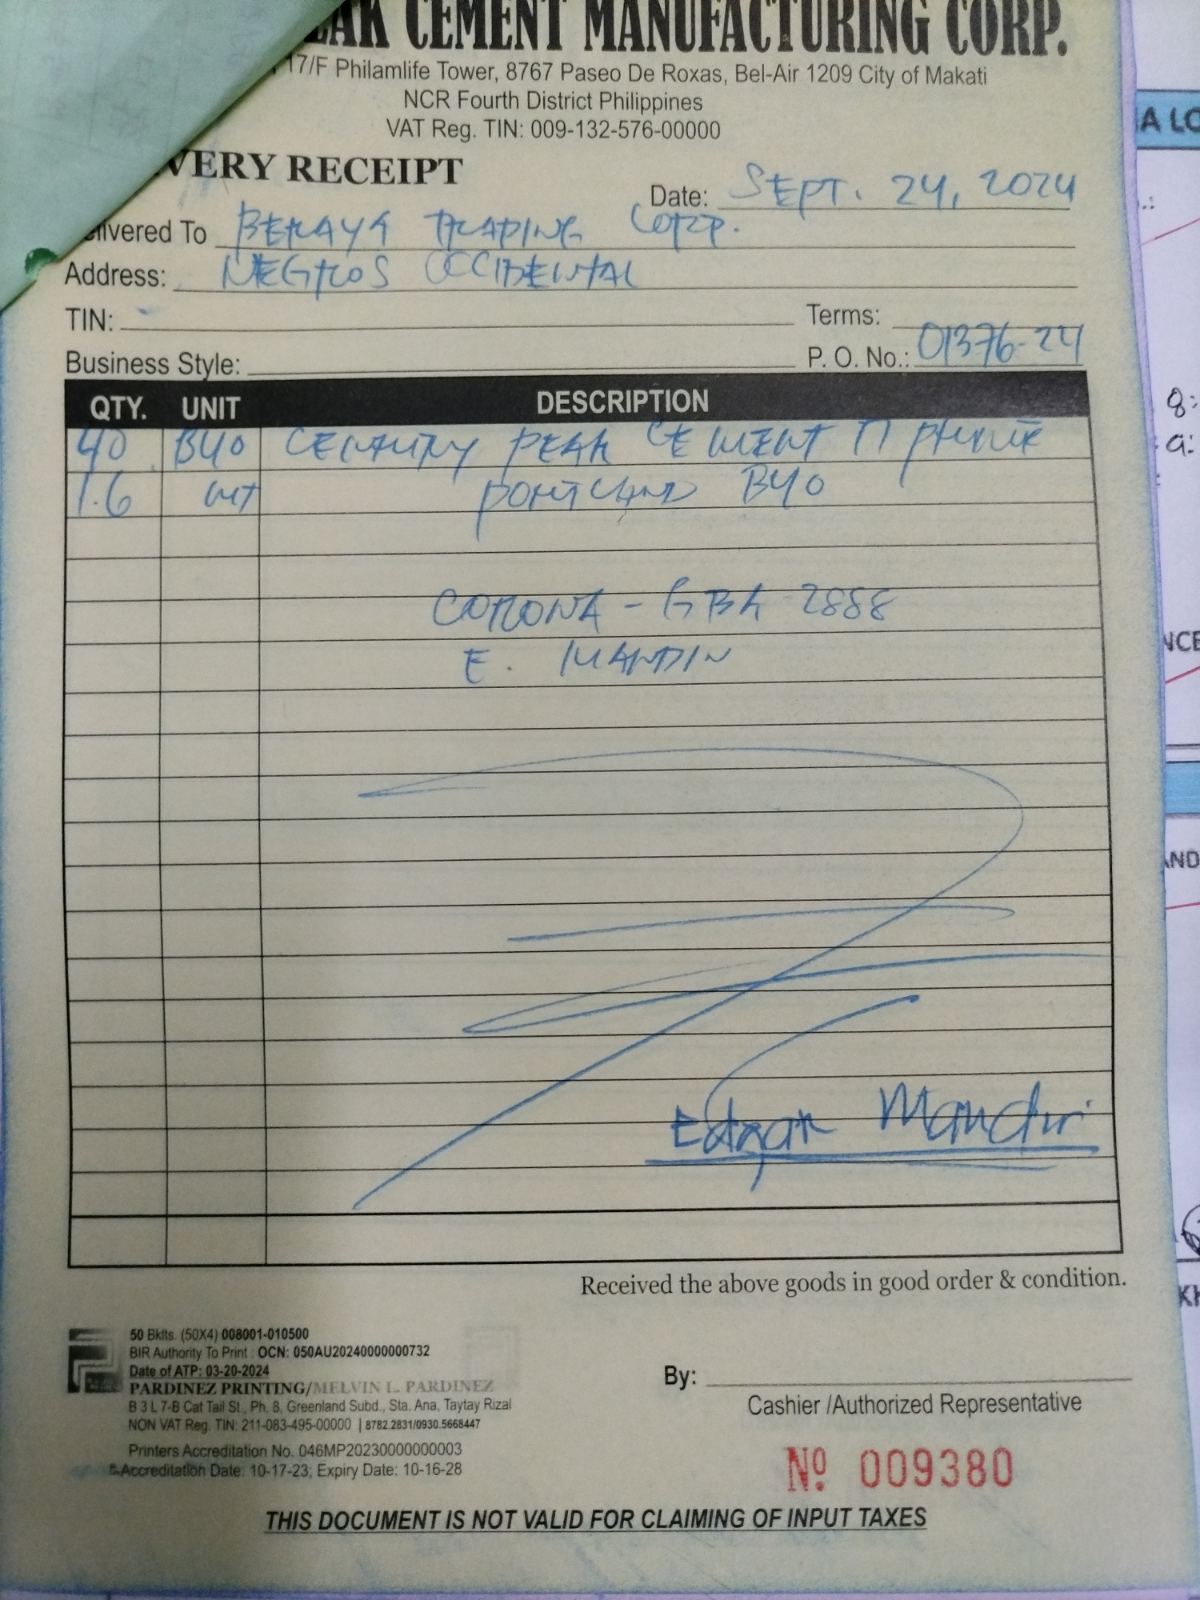 EAK CEMENT MANUFACTURING CORP.
17/F Philamlife Tower, 8767 Paseo De Roxas, Bel-Air 1209 City of Makati
NCR Fourth District Philippines
VAT Reg. TIN: 009-132-576-00000
VERY RECEIPT
Date: SEPT. 24, 2024
elivered To BERAYA TRADING CORP.
Address: NEGROS OCCIDENTAL
TIN:
Terms:
Business Style:
P. O. No.: 01376-24
QTY. UNIT DESCRIPTION
40 B40 CENTURY PEAK CEMENT
1.6 MT PORTLAND B40
CORONA - GBA 2888
E. MANDIN
Edgar
Received the above goods in good order & condition.
50 Bklts. (50X4) 008001-010500
BIR Authority To Print : OCN: 050AU20240000000732
Date of ATP: 03-20-2024
PARDINEZ PRINTING/MELVIN L. PARDINEZ
B 3 L 7-B Cat Tail St., Ph. 8, Greenland Subd., Sta. Ana, Taytay Rizal
NON VAT Reg. TIN: 211-083-495-00000 | 8782.2831/0930.5668447
Printers Accreditation No. 046MP20230000000003
Accreditation Date: 10-17-23; Expiry Date: 10-16-28
By:
Cashier /Authorized Representative
Nº 009380
THIS DOCUMENT IS NOT VALID FOR CLAIMING OF INPUT TAXES
A LO
8:
a:
NCE
AND